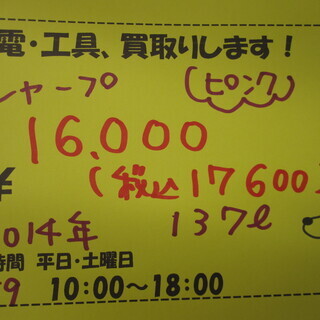 電・工具、買取りします！
シャープ (ピンク)
16,000
¥ (税込17600)
2014年 137ℓ
時間 平日・土曜日
10:00～18:00